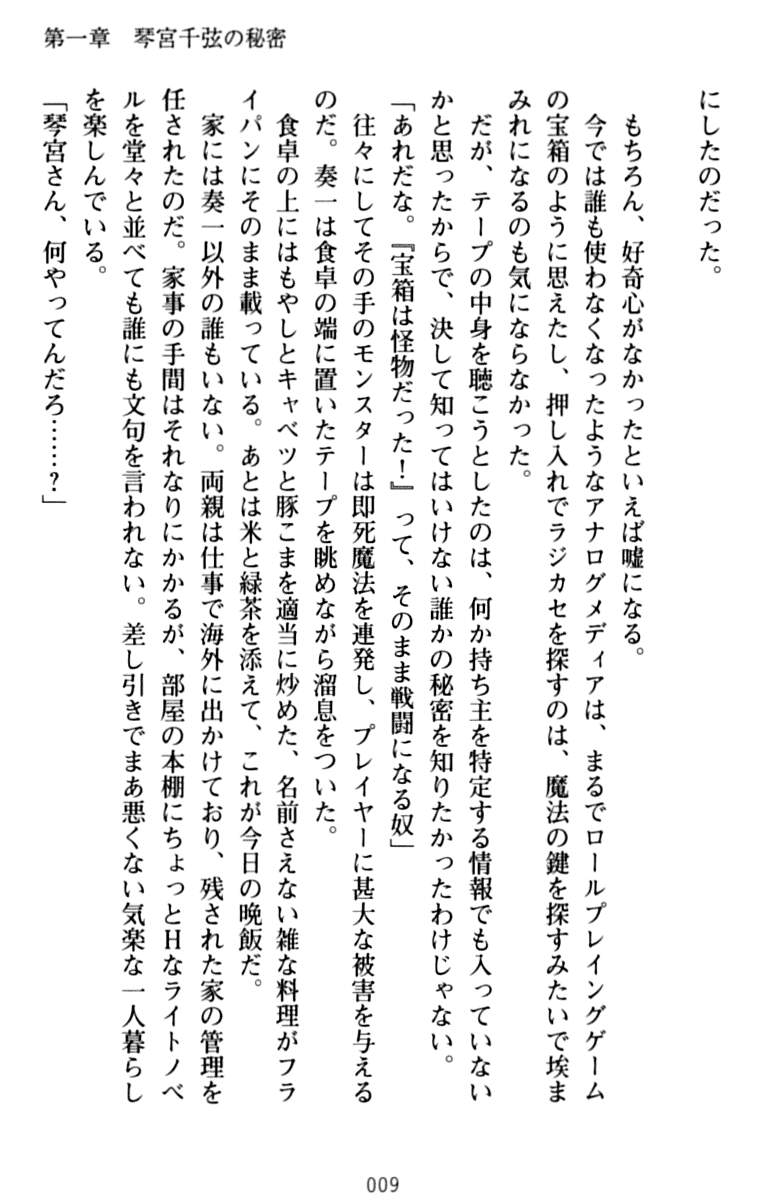 第一章　琴宮千弦の秘密
にしたのだった。
　もちろん、好奇心がなかったといえば嘘になる。
　今では誰も使わなくなったようなアナログメディアは、まるでロールプレイングゲーム
の宝箱のように思えたし、押し入れでラジカセを探すのは、魔法の鍵を探すみたいで埃ま
みれになるのも気にならなかった。
　だが、テープの中身を聴こうとしたのは、何か持ち主を特定する情報でも入っていない
かと思ったからで、決して知ってはいけない誰かの秘密を知りたかったわけじゃない。
「あれだな。『宝箱は怪物だった！』って、そのまま戦闘になる奴」
　往々にしてその手のモンスターは即死魔法を連発し、プレイヤーに甚大な被害を与える
のだ。奏一は食卓の端に置いたテープを眺めながら溜息をついた。
　食卓の上にはもやしとキャベツと豚こまを適当に炒めた、名前さえない雑な料理がフラ
イパンにそのまま載っている。あとは米と緑茶を添えて、これが今日の晩飯だ。
　家には奏一以外の誰もいない。両親は仕事で海外に出かけており、残された家の管理を
任されたのだ。家事の手間はそれなりにかかるが、部屋の本棚にちょっとHなライトノベ
ルを堂々と並べても誰にも文句を言われない。差し引きでまあ悪くない気楽な一人暮らし
を楽しんでいる。
「琴宮さん、何やってんだろ……？」
009